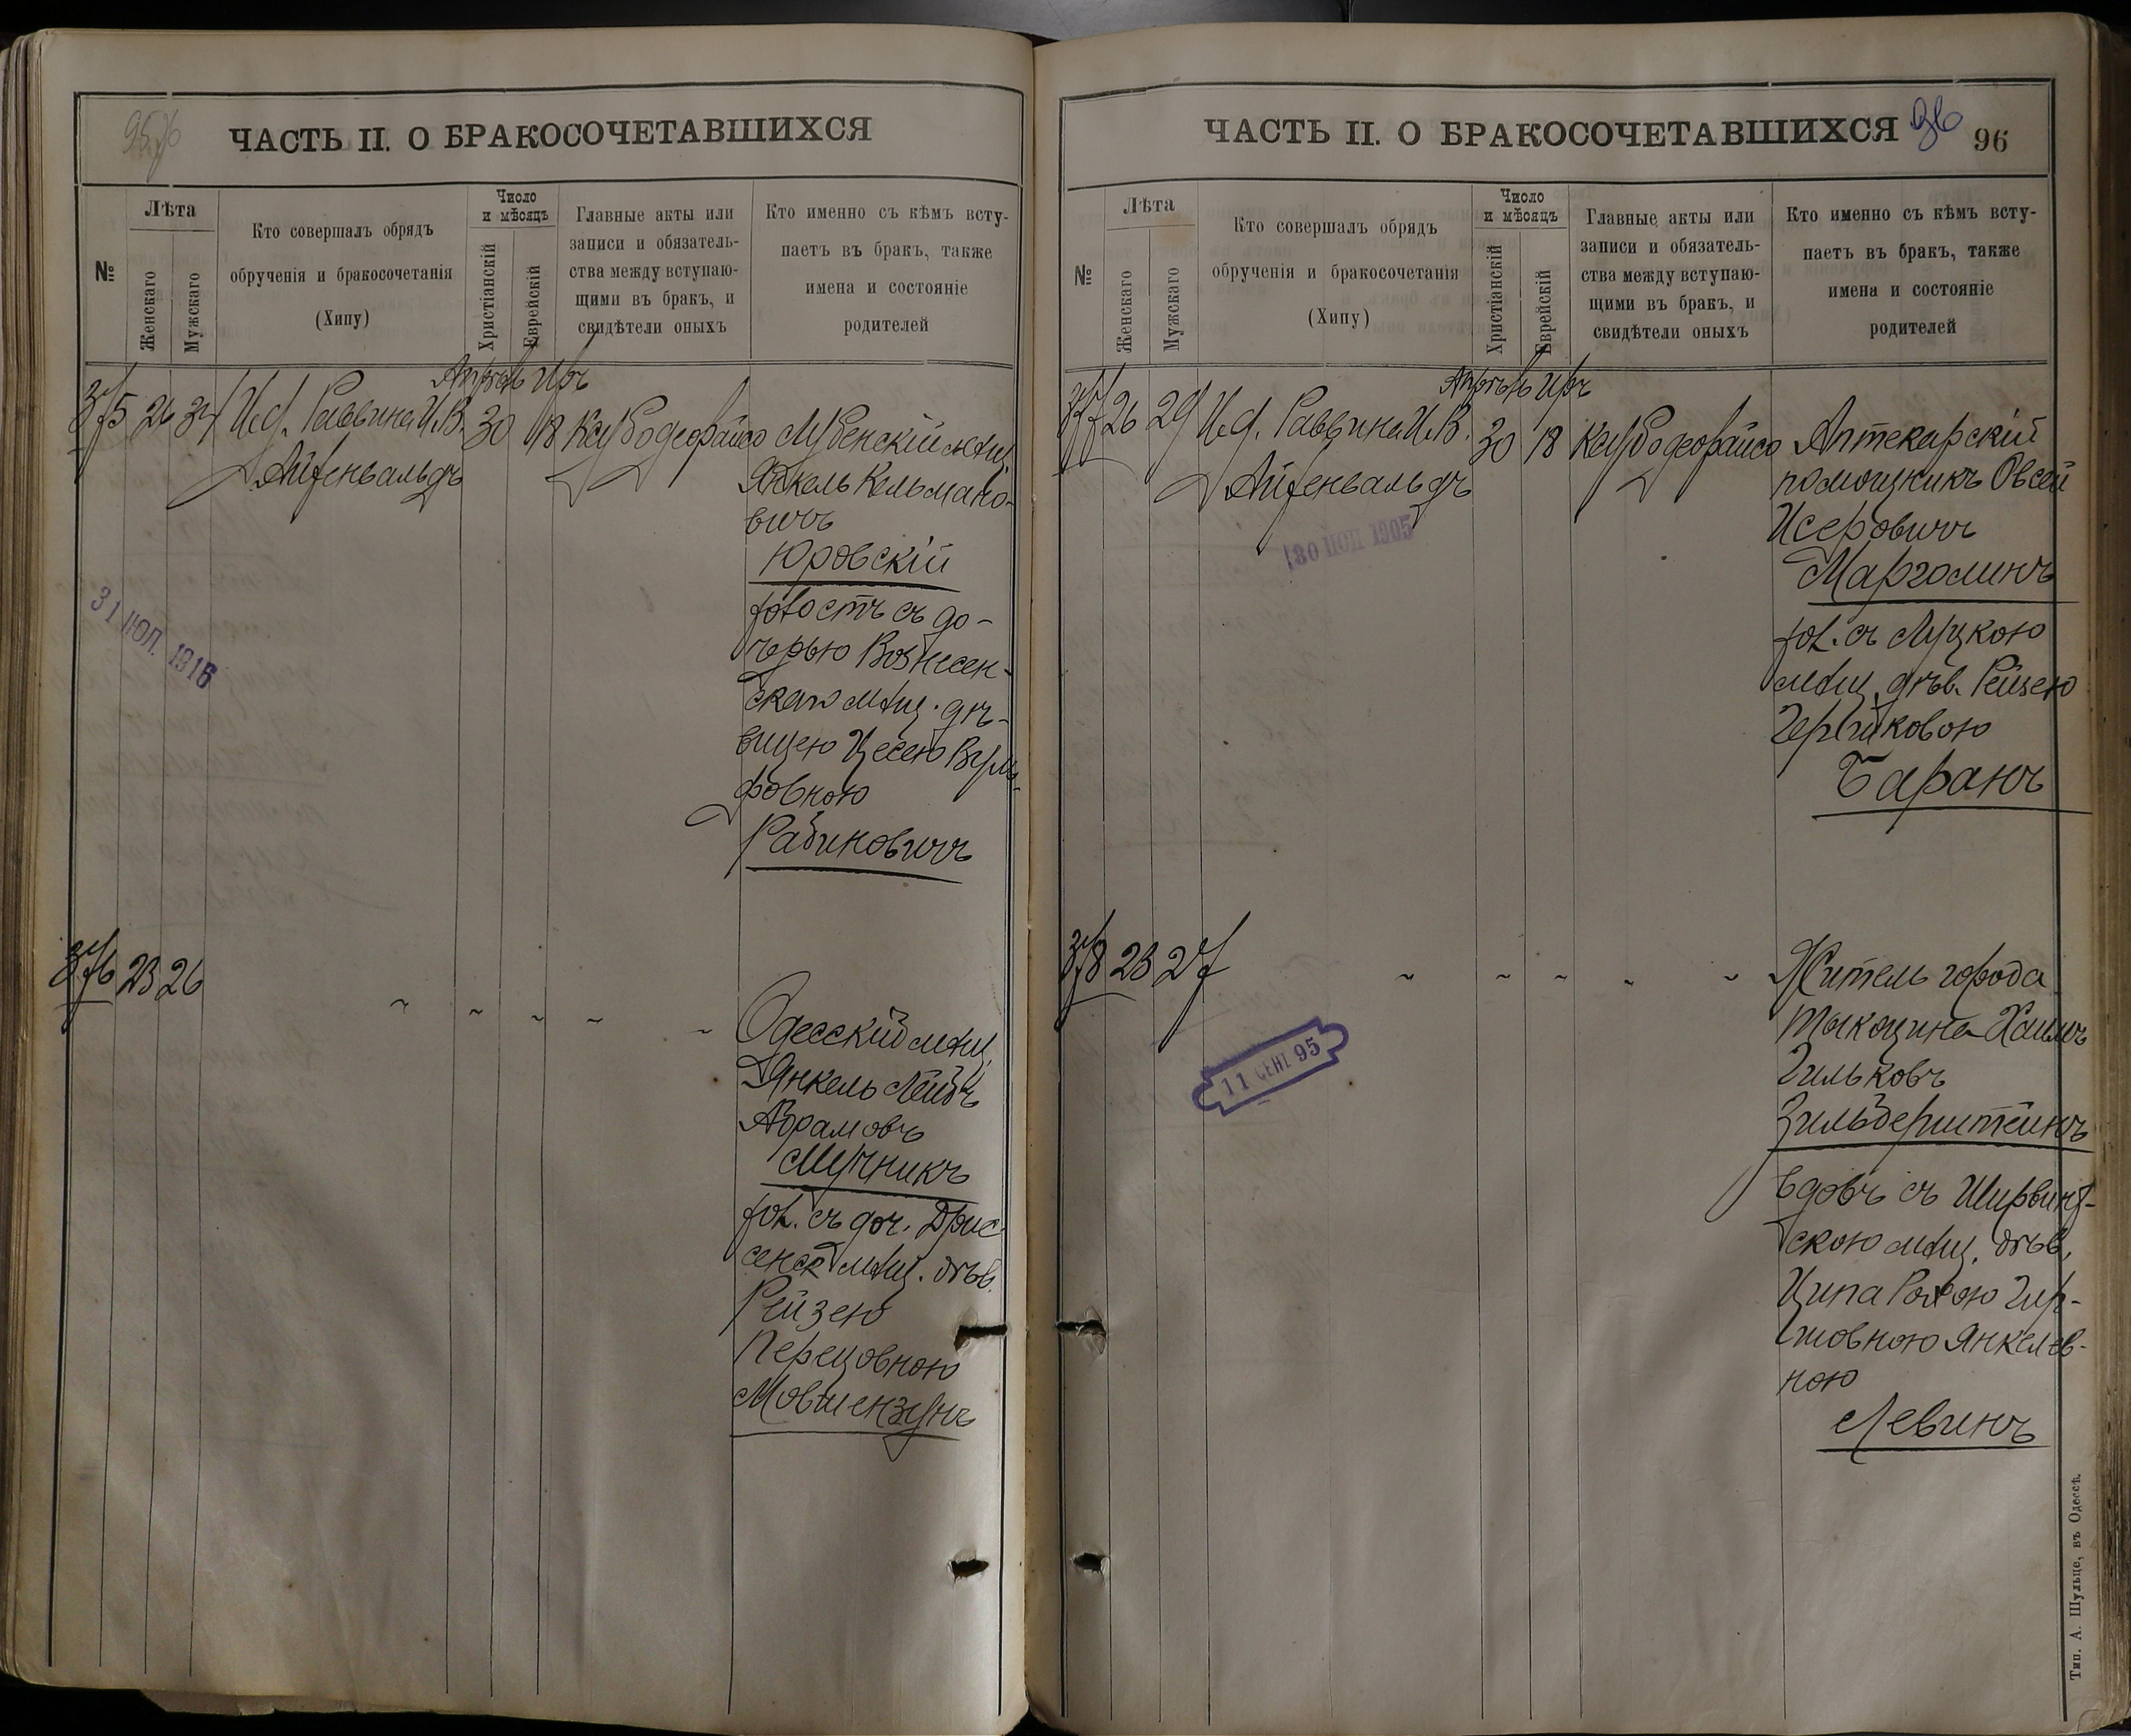 ЧАСТЬ II. О БРАКОСОЧЕТАВШИХСЯ
№
Лѣта
Женскаго
Мужскаго
Кто совершалъ обрядъ
обрученія и бракосочетанія
(Хипу)
Число
и мѣсяцъ
Христіанскій
Еврейскій
Главные акты или
записи и обязатель-
ства между вступаю-
щими въ бракъ, и
свидѣтели оныхъ
Кто именно съ кѣмъ всту-
паетъ въ бракъ, также
имена и состояніе
родителей
Апрѣль Иръ
375 26 34 И.д. Раввина И.В. 30 18
Айзенвальдъ
мѣщ.
Янкель Кельмано-
вичъ
Юровскій
холостъ съ до-
черью Вознесен-
скаго мѣщ. дѣ-
вицею Цесею Вуль-
фовною
Рабиновичъ
31 ІЮЛ. 1916
376 23 26 ~ ~ ~ ~ ~
Одесскій мѣщ.
Янкель Лейбъ
Абрамовъ
Мучникъ
хол. съ доч. Дрис-
сенск мѣщ. дѣв.
Рейзею
Перецовною
Мовшензонъ
ЧАСТЬ II. О БРАКОСОЧЕТАВШИХСЯ
96
96
№
Лѣта
Женскаго
Мужскаго
Кто совершалъ обрядъ
обрученія и бракосочетанія
(Хипу)
Число
и мѣсяцъ
Христіанскій
Еврейскій
Главные акты или
записи и обязатель-
ства между вступаю-
щими въ бракъ, и
свидѣтели оныхъ
Кто именно съ кѣмъ всту-
паетъ въ бракъ, также
имена и состояніе
родителей
Апрѣль Иръ
377 26 29 И.д. Раввина И.В. 30 18
Айзенвальдъ
Аптекарскій
помощникъ Овсей
Исеровичъ
Марголинъ
хол. съ Луцкою
мѣщ. дѣв. Рейзею
Баранъ
1905
378 23 27 ~ ~ ~ ~ ~
Житель города
Тыкоцина Хаимъ
Зильберштейнъ
вдовъ съ Ширвинт-
скою мѣщ. дѣв.
Ципа Рохою Гир-
шовною Янкелев-
ною
Левинъ
11 СЕНТ 95
Тип. А. Шульце, въ Одессѣ.